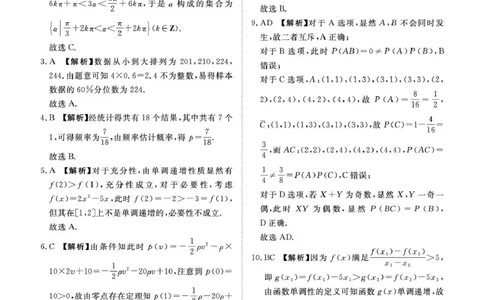 6kπ+π<3α<π/2+6kπ,于是 α 构成的集合为
{α|π/3+2kπ<α<π/2+2kπ}(k∈Z).
故选C.
3.A 【解析】数据从小到大排列为 201,210,224,
244,由题意可知 4×0.6=2.4 不为整数,易得样本
数据的 60%分位数为 224.
故选 A.
4.B 【解析】经统计得共有 18 个结果,其中共有 7 个
1,可得频率为7/18,由频率估计概率,得 p=7/18.
故选 B.
5.A 【解析】对于充分性,由单调递增性质显然有
f(2)>f(1),充分性成立,对于必要性,考虑
f(x)=2x²-5x,此时 f(2)=-2>-3=f(1),
但其在[1,2]上不是单调递增的,必要性不成立.
故选 A.
6.C 【解析】由条件知此时 p(v)=-1/2ρv²-ρ×
10×2v+10=-1/2ρv²-20ρv+10,注意到 p(0)=
10>0,故由零点存在定理知 p(1)=-1/2ρ-20ρ+
故选 B.
9.AD 【解析】对于 A 选项,显然 A,B 不会同时发
生,故二者互斥,A 正确;
对于 B 选项,此时 P(AB)=0≠P(A)P(B),B
错误;
对于 C 选项,A:(1,1),(1,3),(3,1),(3,3),(2,
2),(2,4),(4,2),(4,4),故 P(A)=8/16=1/2,
C̄:(1,1),(1,3),(3,1),(3,3),故 P(C)=1-4/16=
3/4,而 AC:(2,2),(2,4),(4,2),(4,4),P(AC)=
1/4≠3/8=P(A)P(C),C 错误;
对于 D 选项,若 X+Y 为奇数,显然 X,Y 一奇一
偶,此时 XY 为偶数,显然 P(BC)=P(B),
D 正确.
故选 AD.
10.BC 【解析】因为 f(x)满足 f(x₁)-f(x₂)/x₁-x₂>5,
即 g(x₁)=f(x₁)-5x₁>g(x₂)=f(x₂)-5x₂,
由函数单调性的定义可知函数 g(x)单调递增,故